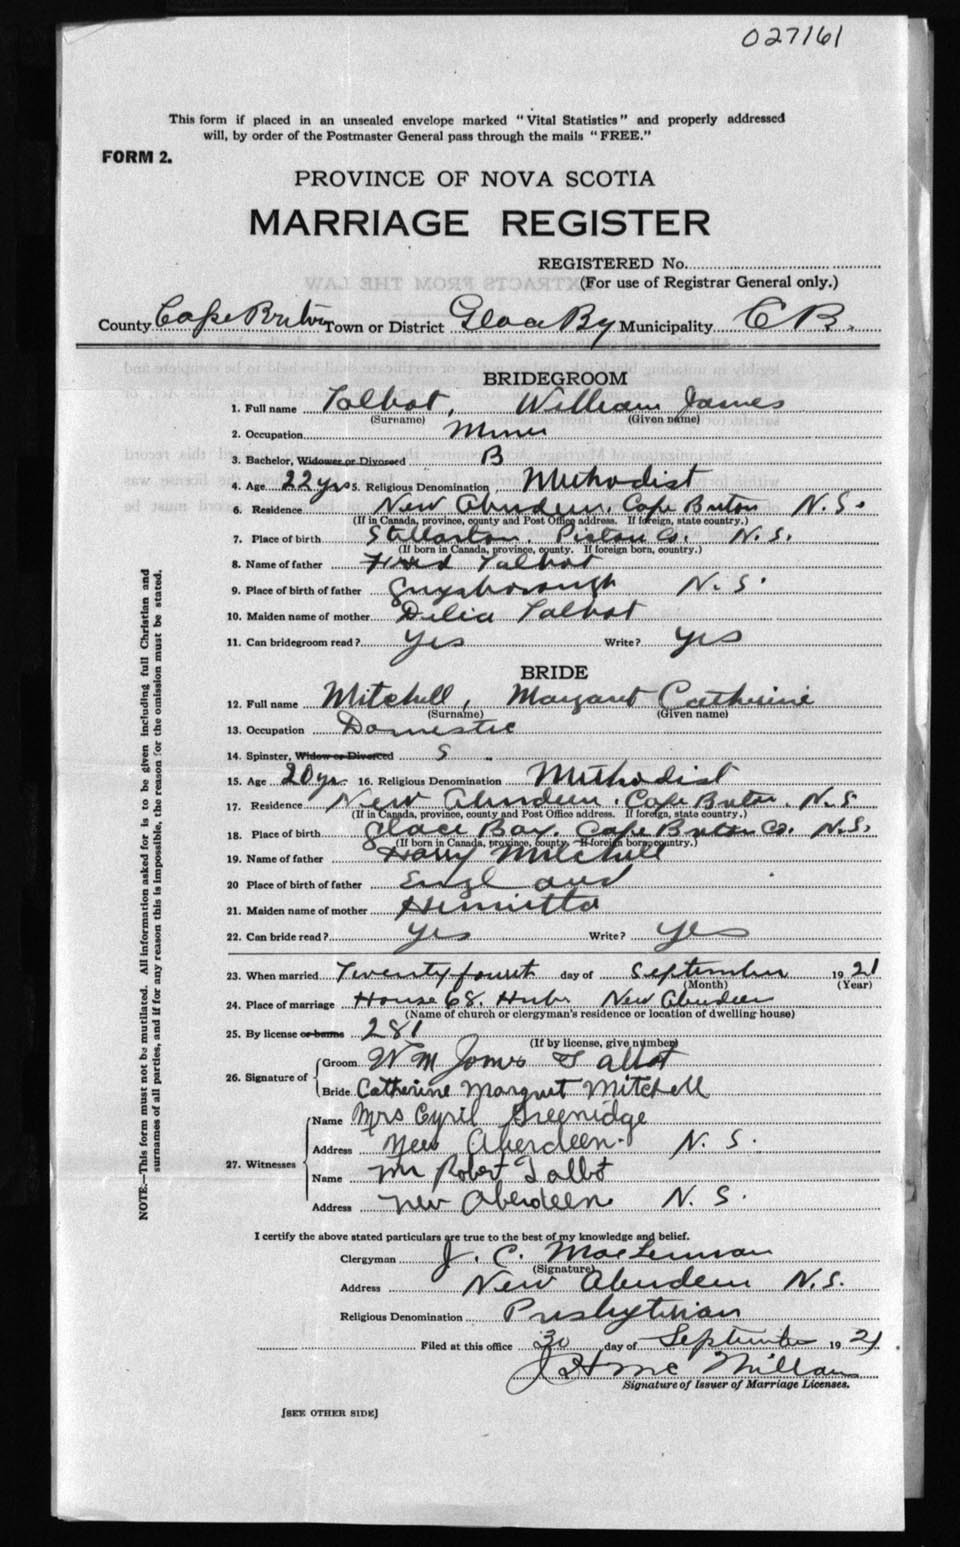 027161
This form if placed in an unsealed envelope marked "Vital Statistics" and properly addressed
will, by order of the Postmaster General pass through the mails "FREE."
FORM 2.
PROVINCE OF NOVA SCOTIA
MARRIAGE REGISTER
REGISTERED No.
(For use of Registrar General only.)
County Cape Breton Town or District Glace Bay Municipality C B.
BRIDEGROOM
1. Full name Talbot, William James
(Surname) (Given name)
2. Occupation Miner
3. Bachelor, Widower or Divorced B
4. Age 22 yrs 5. Religious Denomination Methodist
6. Residence New Aberdeen, Cape Breton N. S.
(If in Canada, province, county and Post Office address. If foreign, state country.)
7. Place of birth Stellarton. Pictou Co. N. S.
(If born in Canada, province, county. If foreign born, country.)
8. Name of father Talbot
9. Place of birth of father Guysborough N. S.
10. Maiden name of mother Delia Talbot
11. Can bridegroom read? Yes Write? Yes
BRIDE
12. Full name Mitchell, Margaret Catherine
(Surname) (Given name)
13. Occupation Domestic
14. Spinster, Widow or Divorced S
15. Age 20 yr. 16. Religious Denomination Methodist
17. Residence New Aberdeen, Cape Breton, N. S
(If in Canada, province, county and Post Office address. If foreign, state country.)
18. Place of birth Glace Bay. Cape Breton Co. N. S.
(If born in Canada, province, county. If foreign born, country.)
19. Name of father Harry Mitchell
20 Place of birth of father England
21. Maiden name of mother Henrietta
22. Can bride read? Yes Write? Yes
23. When married Twenty fourth day of September 1921
(Month) (Year)
24. Place of marriage House 68. New Aberdeen
(Name of church or clergyman's residence or location of dwelling house)
25. By license or banns 281
(If by license, give number)
26. Signature of Groom Wm James Talbot
Bride Catherine Margret Mitchell
27. Witnesses Name Mrs Cyril Greenidge
Address New Aberdeen. N. S.
Name Mr Robert Talbot
Address New Aberdeen N. S.
I certify the above stated particulars are true to the best of my knowledge and belief.
Clergyman J. C. MacLennan
(Signature)
Address New Aberdeen N. S.
Religious Denomination Presbyterian
Filed at this office 30 day of September 1921
J H McMillan
Signature of Issuer of Marriage Licenses.
[SEE OTHER SIDE]
NOTE.—This form must not be mutilated. All information asked for is to be given including full Christian and
surnames of all parties, and if for any reason this is impossible, the reason for the omission must be stated.